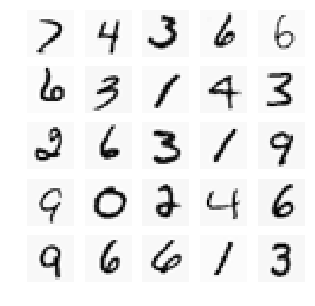 7 4 3 6 6
6 3 1 4 3
2 6 3 1 9
9 0 2 4 6
9 6 6 1 3